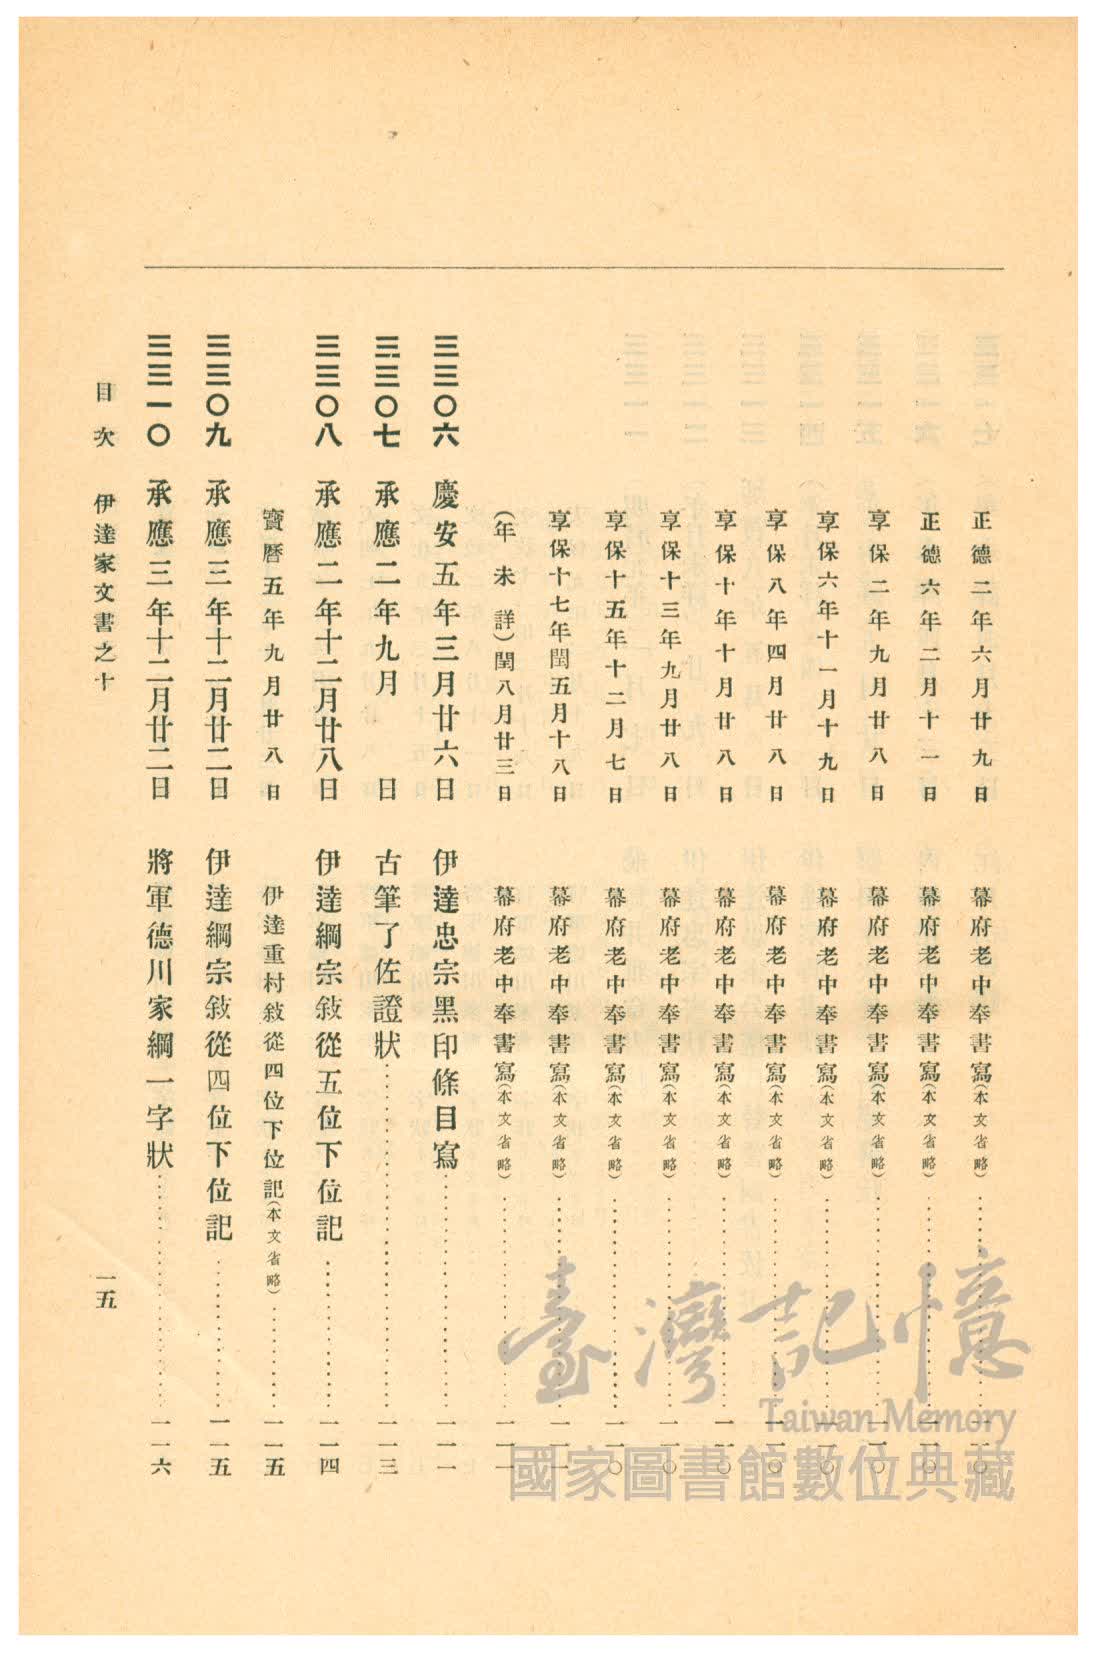 正德二年六月廿九日 幕府老中奉書寫(本文省略)…一一〇
正德六年二月十一日 幕府老中奉書寫(本文省略)…一一〇
享保二年九月廿八日 幕府老中奉書寫(本文省略)…一一〇
享保六年十一月十九日 幕府老中奉書寫(本文省略)…一一〇
享保八年四月廿八日 幕府老中奉書寫(本文省略)…一一〇
享保十年十月廿八日 幕府老中奉書寫(本文省略)…一一〇
享保十三年九月廿八日 幕府老中奉書寫(本文省略)…一一〇
享保十五年十二月七日 幕府老中奉書寫(本文省略)…一一〇
享保十七年閏五月十八日 幕府老中奉書寫(本文省略)…一一一
(年未詳)閏八月廿三日 幕府老中奉書寫(本文省略)…一一一
三三〇六 慶安五年三月廿六日 伊達忠宗黑印條目寫…一一一
三三〇七 承應二年九月 日 古筆了佐證狀…一一三
三三〇八 承應二年十二月廿八日 伊達綱宗敍從五位下位記…一一四
寶曆五年九月廿八日 伊達重村敍從四位下位記(本文省略)…一一五
三三〇九 承應三年十二月廿二日 伊達綱宗敍從四位下位記…一一五
三三一〇 承應三年十二月廿二日 將軍德川家綱一字狀…一一六
目次 伊達家文書之十 一五
臺灣記憶
Taiwan Memory
國家圖書館數位典藏